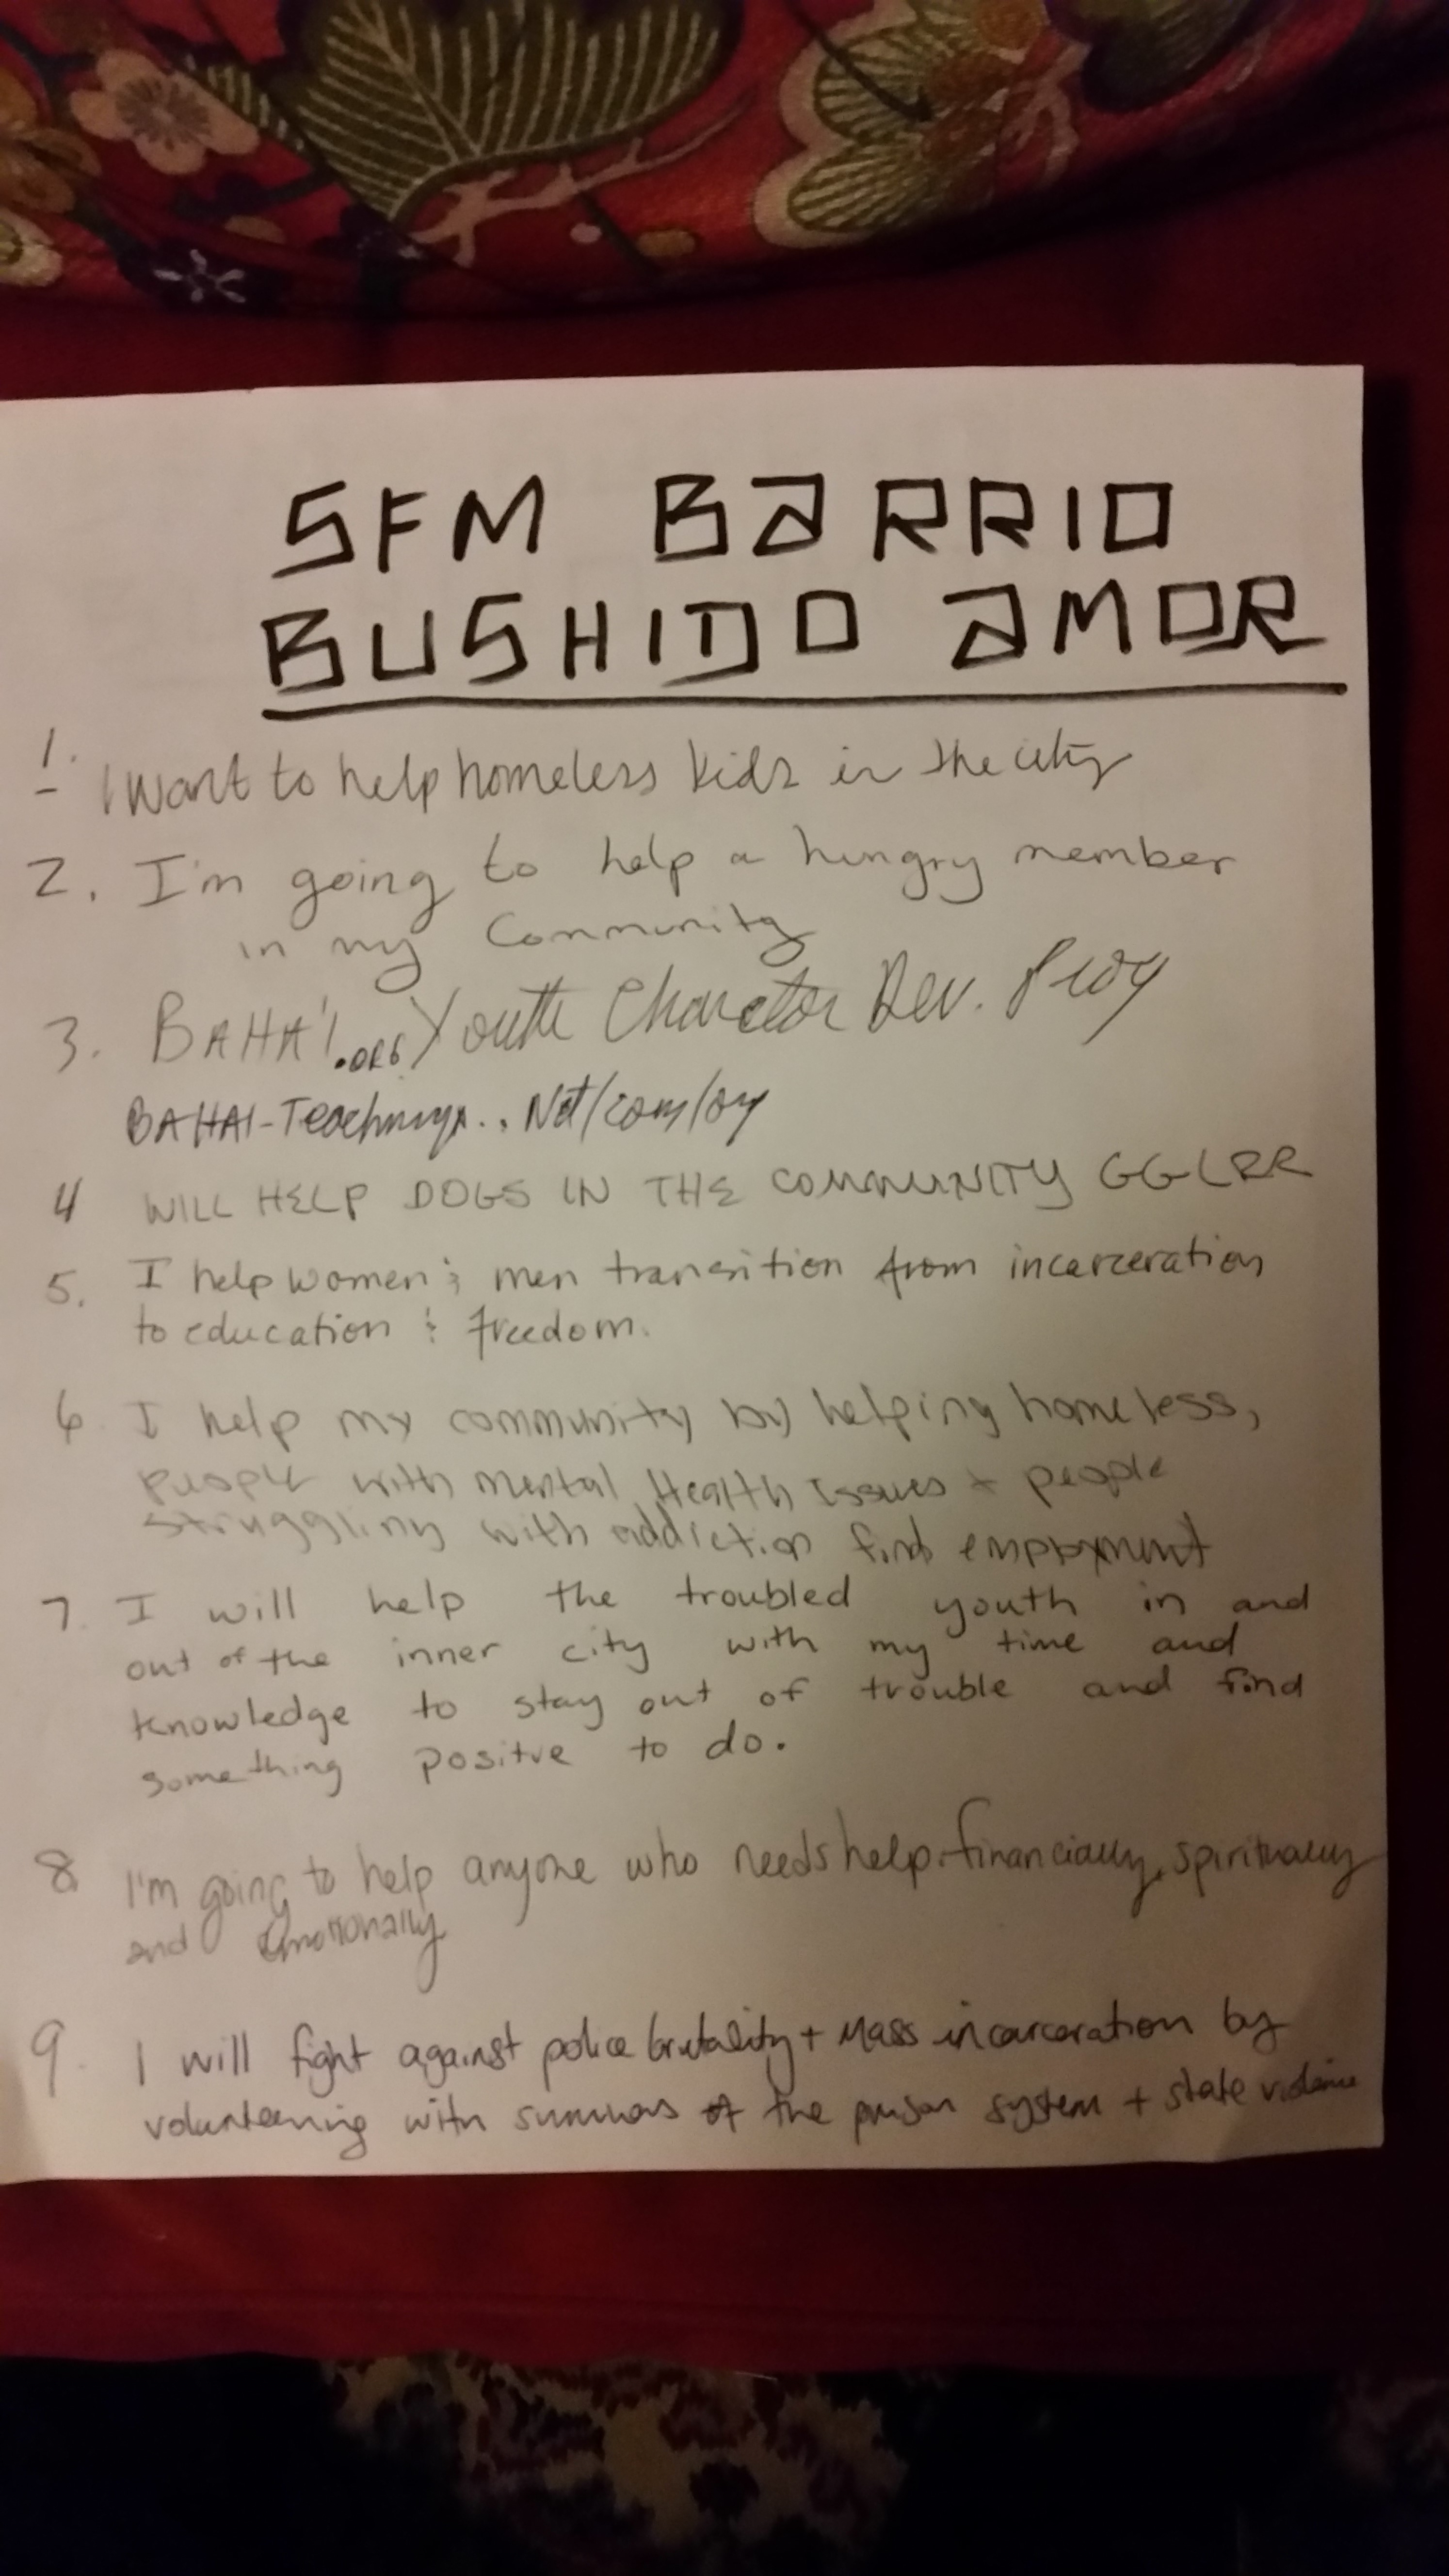 SFM BARRIO
BUSHIDO AMOR
1. I want to help homeless kids in the city
2. I'm going to help a hungry member
in my Community
3. BAHA'I.ORG Youth Character Dev.
BAHAI-Teachings.. Net/com/org
4 WILL HELP DOGS IN THE COMMUNITY GGLRR
5. I help women & men transition from incarceration
to education & freedom.
6 I help my community by helping homeless,
people with mental Health Issues + people
struggling with addiction find employment
7. I will help the troubled youth in and
out of the inner city with my time and
knowledge to stay out of trouble and find
something positve to do.
8 I'm going to help anyone who needs help. financially, spiritually
and emotionally
9. I will fight against police brutality + mass incarceration by
volunteering with of the prison system + state violence